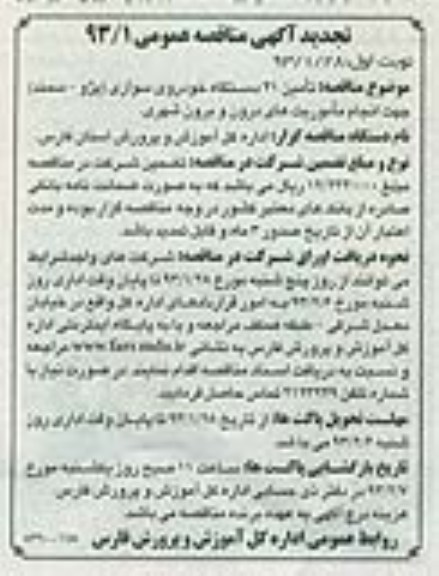 تجدید آگهی مناقصه عمومی ۹۳/۱
نوبت اول: ۹۳/۱/۲۸
موضوع مناقصه: تأمین ۲۱ دستگاه خودروی سواری (پژو - سمند)
جهت انجام مأموریت های درون و برون شهری.
نام دستگاه مناقصه گزار: اداره کل آموزش و پرورش استان فارس.
نوع و مبلغ تضمین شرکت در مناقصه: تضمین شرکت در مناقصه
مبلغ ریال می باشد که به صورت ضمانت نامه بانکی
صادره از بانک های معتبر کشور در وجه مناقصه گزار بوده و مدت
اعتبار آن از تاریخ صدور ۳ ماه و قابل تمدید باشد.
نحوه دریافت اوراق شرکت در مناقصه: شرکت های واجدشرایط
می توانند از روز پنج شنبه مورخ ۹۳/۱/۲۸ تا پایان وقت اداری روز
شنبه مورخ ۹۳/۲/۶ به امور قراردادهای اداره کل واقع در خیابان
معدل شرقی - طبقه همکف مراجعه و یا به پایگاه اینترنتی اداره
کل آموزش و پرورش فارس به نشانی www.fars.medu.ir مراجعه
و نسبت به دریافت اسناد مناقصه اقدام نمایند. در صورت نیاز با
شماره تلفن تماس حاصل فرمایند.
مهلت تحویل پاکت ها: از تاریخ ۹۳/۱/۲۸ تا پایان وقت اداری روز
شنبه ۹۳/۲/۶ می باشد.
تاریخ بازگشایی پاکت ها: ساعت ۱۱ صبح روز یکشنبه مورخ
۹۳/۲/۷ در دفتر ذی حسابی اداره کل آموزش و پرورش فارس.
هزینه درج آگهی به عهده برنده مناقصه می باشد.
روابط عمومی اداره کل آموزش و پرورش فارس